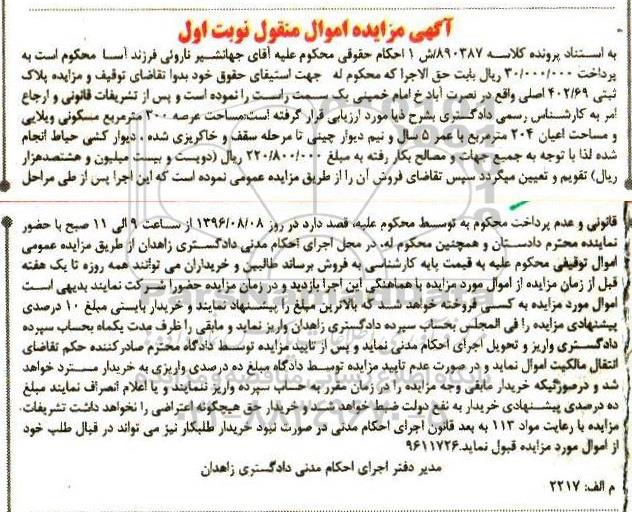 آگهی مزایده اموال منقول نوبت اول
به استناد پرونده کلاسه ۸۹۰۳۸۷/ش ۱ احکام حقوقی محکوم علیه آقای جهانشیر ناروئی فرزند آسا محکوم است به
پرداخت ۳۰/۰۰۰/۰۰۰ ریال بابت حق الاجرا که محکوم له جهت استیفای حقوق خود بدوا تقاضای توقیف و مزایده پلاک
ثبتی ۴۰۲/۶۹ اصلی واقع در نصرت آباد خ امام خمینی یک سمت راست را نموده است و پس از تشریفات قانونی و ارجاع
امر به کارشناس رسمی دادگستری بشرح ذیل مورد ارزیابی قرار گرفته است:مساحت عرصه ۳۰۰ مترمربع مسکونی ویلایی
و مساحت اعیان ۲۰۴ مترمربع با عمر ۵ سال و نیم دیوار چینی تا مرحله سقف و خاکریزی شده ، دیوار کشی حیاط انجام
شده لذا با توجه به جمیع جهات و مصالح بکار رفته به مبلغ ۲۲۰/۸۰۰/۰۰۰ ریال (دویست و بیست میلیون و هشتصدهزار
ریال) تقویم و تعیین میگردد سپس تقاضای فروش آن را از طریق مزایده عمومی نموده است که این اجرا پس از طی مراحل
قانونی و عدم پرداخت محکوم به توسط محکوم علیه، قصد دارد در روز ۱۳۹۶/۰۸/۰۸ از ساعت ۹ الی ۱۱ صبح با حضور
نماینده محترم دادستان و همچنین محکوم له، در محل اجرای احکام مدنی دادگستری زاهدان از طریق مزایده عمومی
اموال توقیفی محکوم علیه به قیمت پایه کارشناسی به فروش برساند طالبین و خریداران می توانند همه روزه تا یک هفته
قبل از زمان مزایده از اموال مورد مزایده با هماهنگی این اجرا بازدید و در زمان مزایده حضورا شرکت نمایند بدیهی است
اموال مورد مزایده به کسی فروخته خواهد شد که بالاترین مبلغ را پیشنهاد نمایند و خریدار بایستی مبلغ ۱۰ درصدی
پیشنهادی مزایده را فی المجلس بحساب سپرده دادگستری زاهدان واریز نماید و مابقی را ظرف مدت یکماه بحساب سپرده
دادگستری واریز و تحویل اجرای احکام مدنی نماید و پس از تایید مزایده توسط دادگاه محترم صادرکننده حکم تقاضای
انتقال مالکیت اموال نماید و در صورت عدم تایید مزایده توسط دادگاه مبلغ ده درصدی واریزی به خریدار مسترد خواهد
شد و درصورتیکه خریدار مابقی وجه مزایده را در زمان مقرر به حساب سپرده واریز ننمایند و یا اعلام انصراف نمایند مبلغ
ده درصدی پیشنهادی خریدار به نفع دولت ضبط خواهد شد و خریدار حق هیچگونه اعتراضی را نخواهد داشت تشریفات
مزایده با رعایت مواد ۱۱۳ به بعد قانون اجرای احکام مدنی در صورت نبود خریدار طلبکار نیز می تواند در قبال طلب خود
از اموال مورد مزایده قبول نماید.۹۶۱۱۷۲۶
مدیر دفتر اجرای احکام مدنی دادگستری زاهدان
م الف: ۲۲۱۷